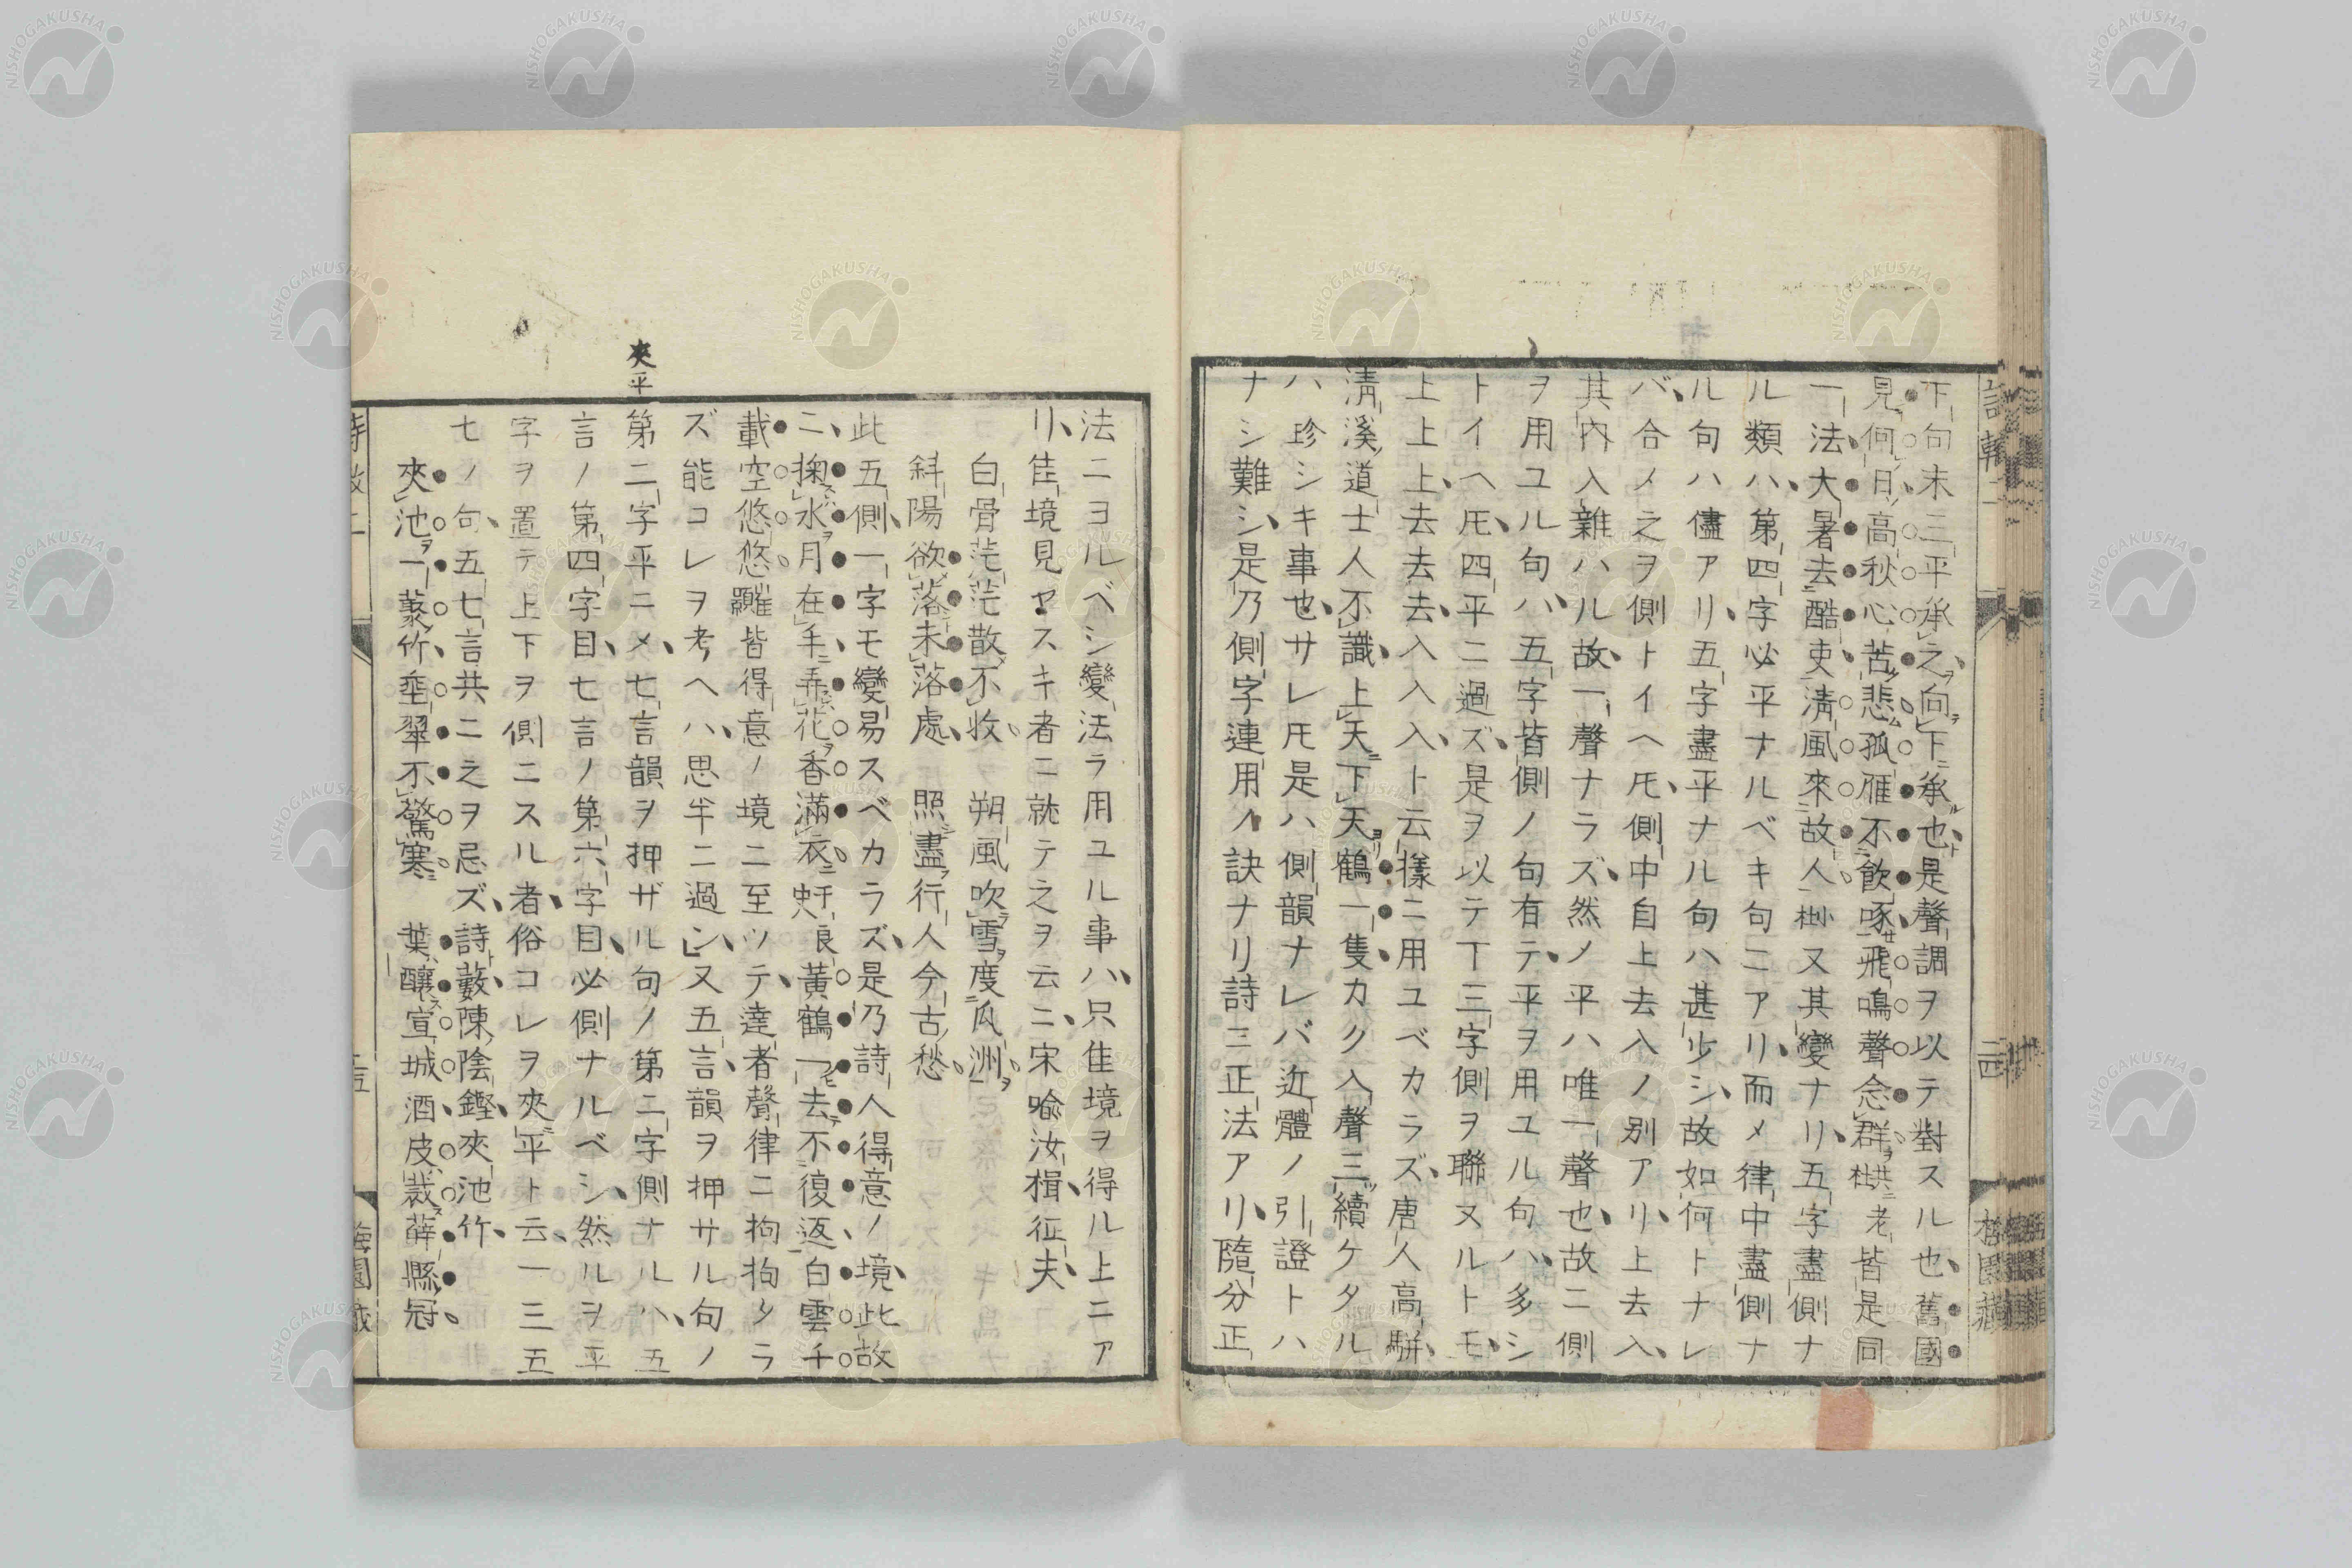 下句末三平承之向下承也是聲調ヲ以テ對スル也舊國
見何日高秋心苦悲孤雁不飲啄飛鳴聲念群杜老皆是同
一法大暑去酷吏淸風來故人又其變ナリ五字盡側ナ
ル類ハ第四字必平ナルベキ句ニアリ而メ律中盡側ナ
ル句ハ儘アリ五字盡平ナル句ハ甚少シ故如何トナレ
バ合メ之ヲ側トイヘ𪜈側中自上去入ノ别アリ上去入
其内入雜ハル故一聲ナラズ然メ平ハ唯一聲也故ニ側
ヲ用ユル句ハ五字皆側ノ句有テ平ヲ用ユル句ハ多シ
トイヘ𪜈四平ニ過ズ是ヲ以テ下三字側ヲ聯ヌルトモ
上上上去去去入入入ト云樣ニ用ユベカラズ唐人高駢
淸溪道士人不識上天下天鶴一隻カク入聲三續ケタル
ハ珍シキ事也サレ𪜈是ハ側韻ナレバ近體ノ引證トハ
ナシ難シ是乃側字連用ノ訣ナリ詩三正法アリ隨分正
法ニヨルベシ變法ヲ用ユル事ハ只佳境ヲ得ル上ニア
リ佳境見ヤスキ者ニ就テ之ヲ云ニ宋喩汝楫征夫
白骨茫茫散不收 朔風吹雪度瓜洲
斜陽欲落未落處 照盡行人今古愁
此五側一字モ變易スベカラズ是乃詩人得意ノ境此故
ニ掬水月在手弄花香滿衣 黃鶴一去不復返白雲千
載空悠悠 皆得意ノ境ニ至ツテ達者聲律ニ拘拘タラ
ズ能コレヲ考ヘハ思半ニ過ン又五言韻ヲ押サル句ノ
夾平
第二字平ニメ七言韻ヲ押ザル句ノ第二字側ナルハ五
言ノ第四字目七言ノ第六字目必側ナルベシ然ルヲ平
字ヲ置テ上下ヲ側ニスル者俗コレヲ夾平ト云一三五
七ノ句五七言共ニ之ヲ忌ズ詩藪陳陰鏗夾池竹
夾池一叢竹垂翠不驚寒 葉醸宣城酒皮裁薛縣冠